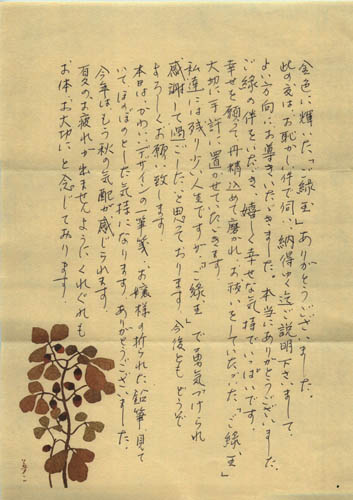 金色に輝いた「ご縁玉」ありがとうございました。
此の度はお恥かしい件で伺い納得ゆく迄ご説明下さいまして、
よい方向にお導きいただきました。本当にありがとうございました。
ご縁の伴をいただき、嬉しく幸せな気持でいっぱいです。
幸せを願って丹精込めて磨かれ、お祓いをしていただいた「ご縁玉」
大切に手許に置かせていただきます。
私達には残り少い人生ですが、「ご縁玉」で勇気づけられ
感謝して過ごしたいと思っております。今後ともどうぞ
よろしくお願い致します。
本日はかわいいデザインの筆箋、お嬢様の折られた鉛筆、見て
いてほのぼのとした気持になります。ありがとうございました。
今年はもう秋の気配が感じられます。
夏のお疲れが出ませんようにくれぐれも
お体お大切にと念じております。